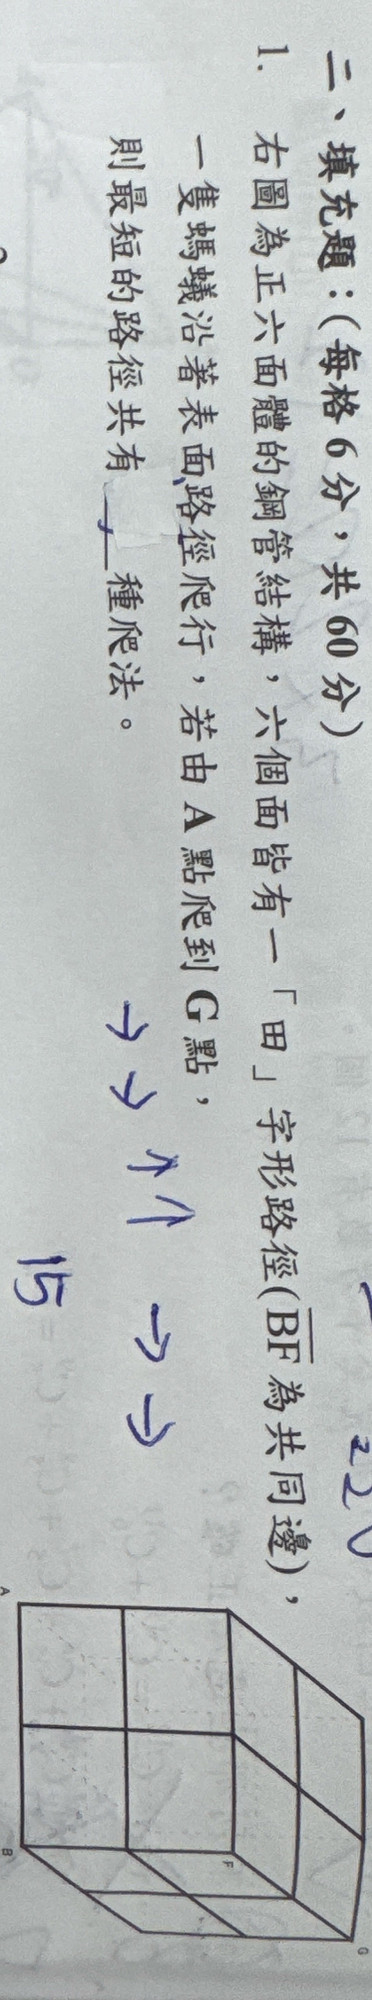 二、填充題：(每格 6 分，共 60 分)
1. 右圖為正六面體的鋼管結構，六個面皆有一「田」字形路徑(BF為共同邊)，
一隻螞蟻沿著表面路徑爬行，若由 A 點爬到 G 點，
則最短的路徑共有____種爬法。
→ → ↑ ↑ → →
15
A
B
F
G